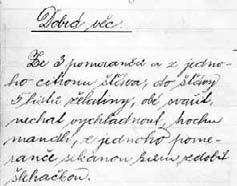 Dobrá věc.
Ze 3 pomerančů a z jedno-
ho citronu šťáva, do šťávy
5 lístků želatiny, dě svařit,
nechat vychladnout, trochu
mandlí, z jednoho pome-
ranče sekanou kůru, zdobit
šlehačkou.